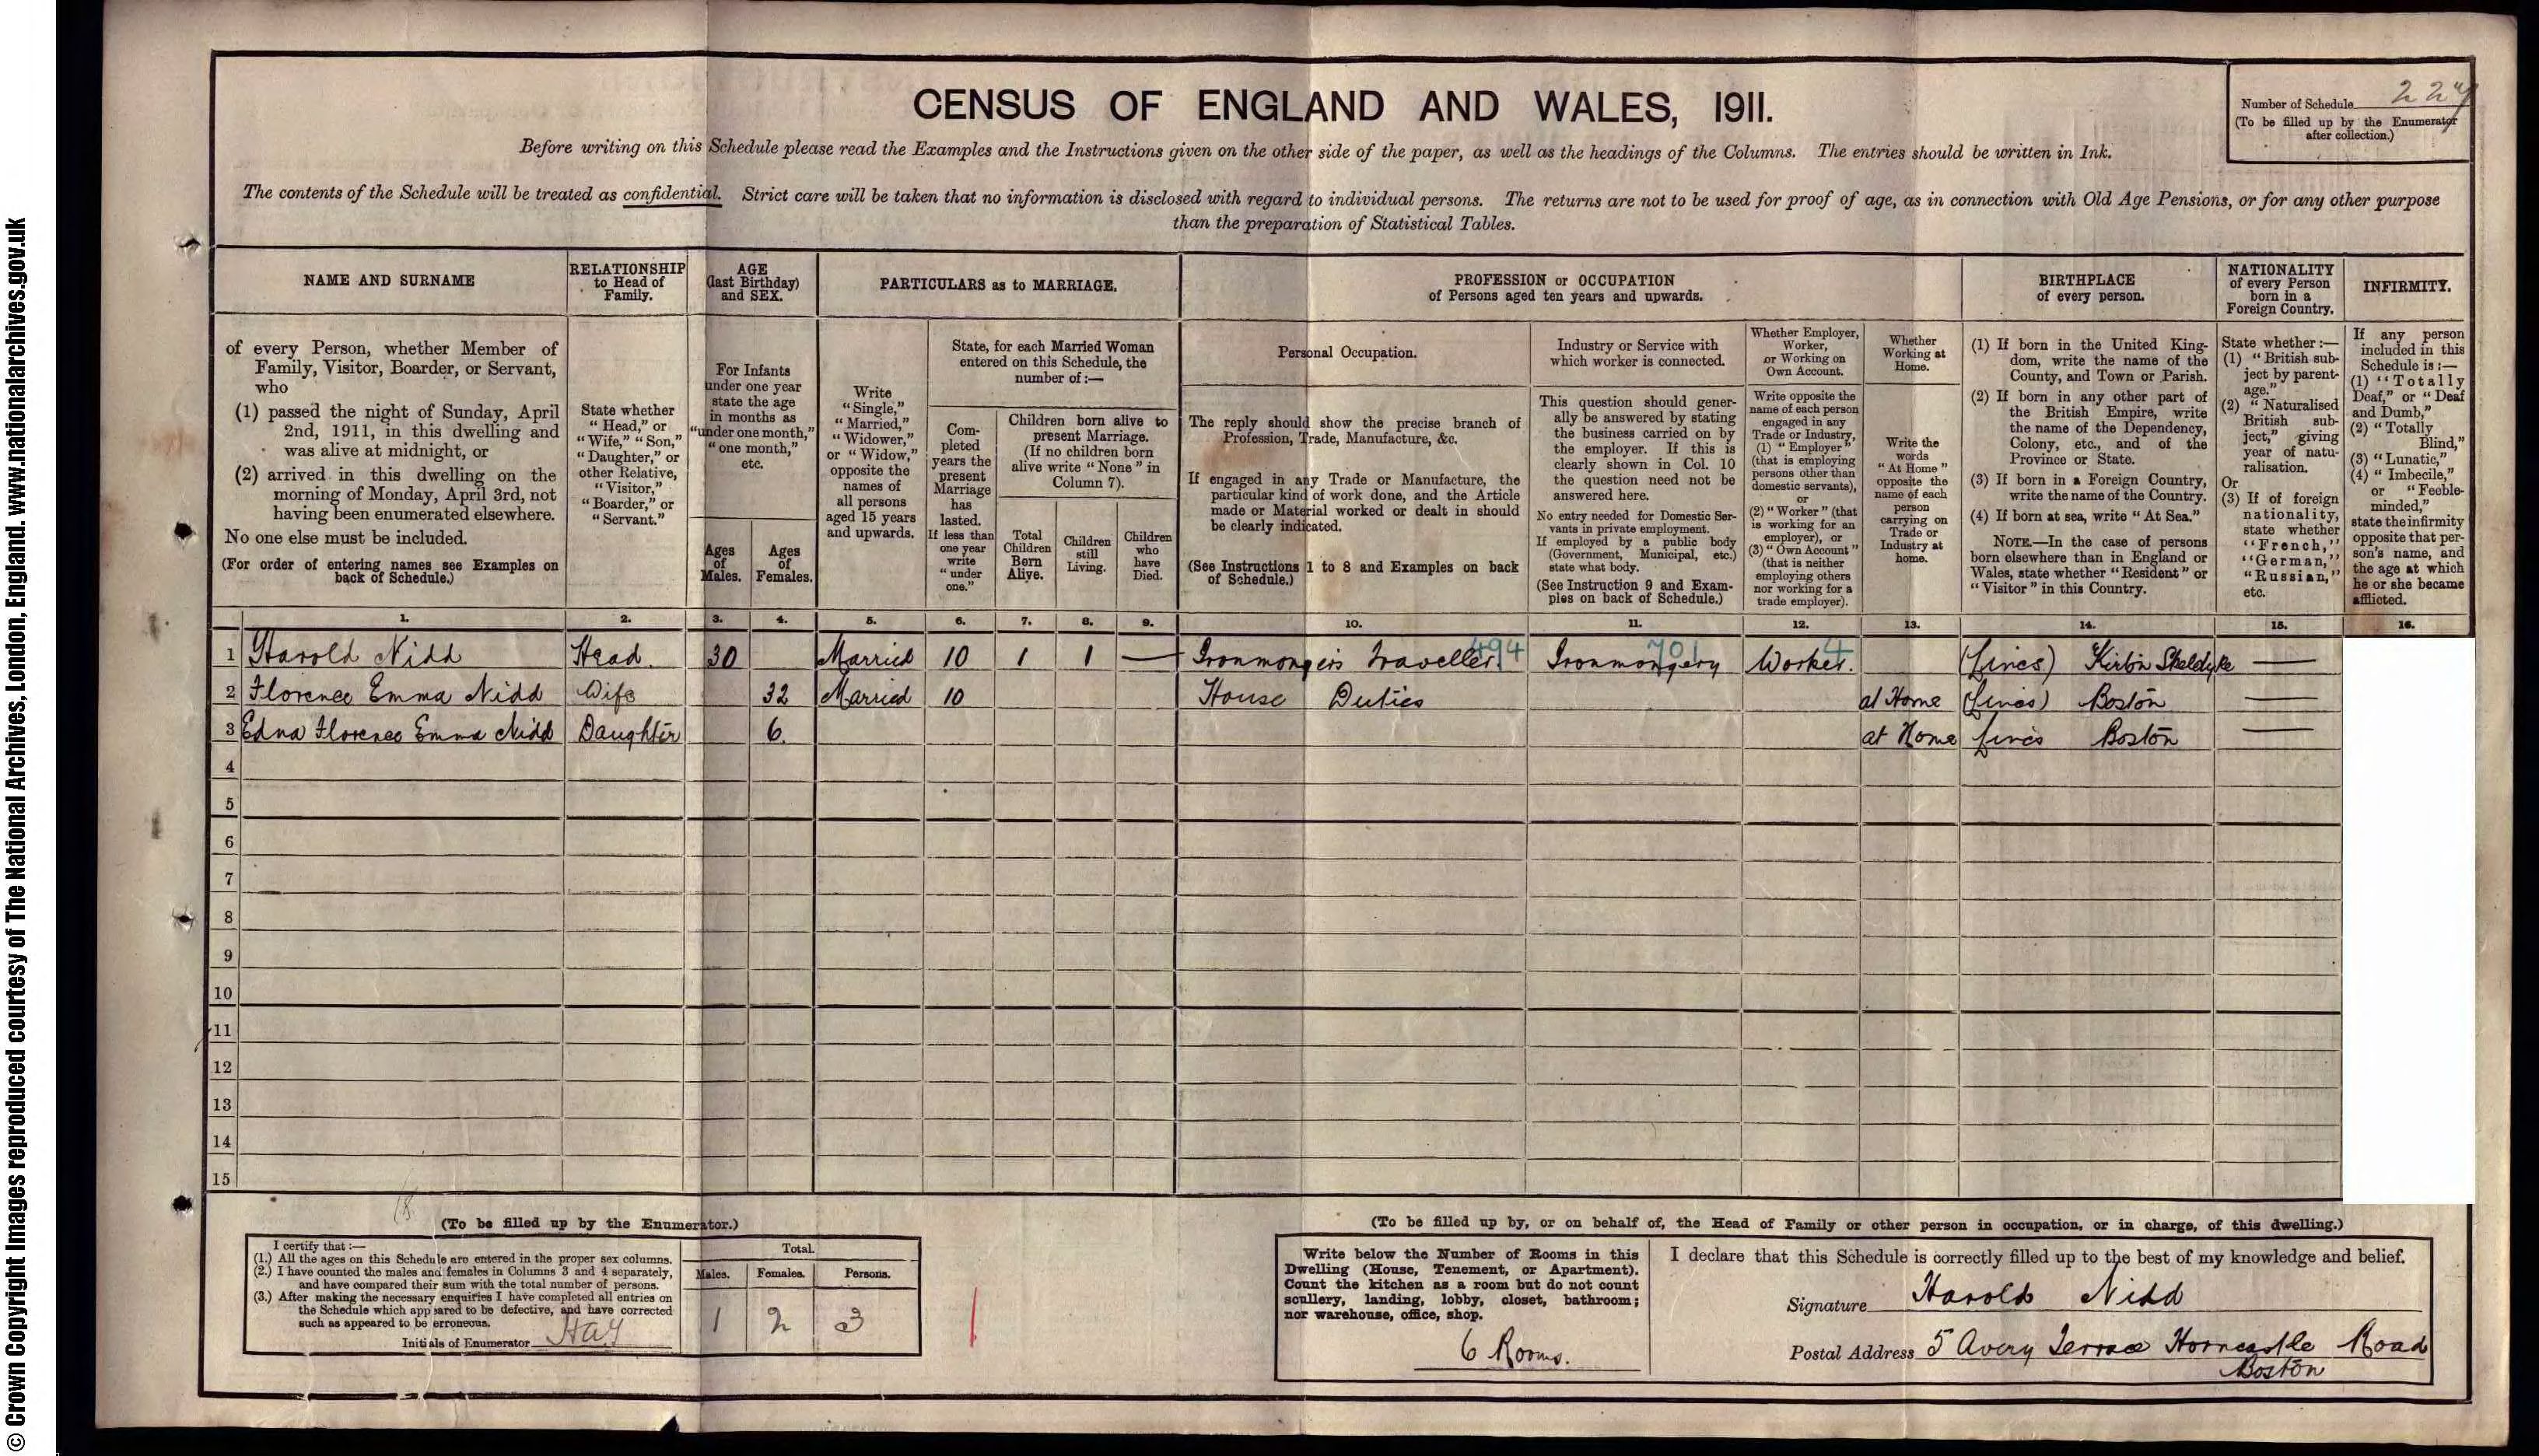 © Crown Copyright Images reproduced courtesy of The National Archives, London, England. www.nationalarchives.gov.uk
CENSUS OF ENGLAND AND WALES, 1911.
Number of Schedule 227
(To be filled up by the Enumerator
after collection.)
Before writing on this Schedule please read the Examples and the Instructions given on the other side of the paper, as well as the headings of the Columns. The entries should be written in Ink.
The contents of the Schedule will be treated as confidential. Strict care will be taken that no information is disclosed with regard to individual persons. The returns are not to be used for proof of age, as in connection with Old Age Pensions, or for any other purpose
than the preparation of Statistical Tables.
NAME AND SURNAME
of every Person, whether Member of
Family, Visitor, Boarder, or Servant,
who
(1) passed the night of Sunday, April
2nd, 1911, in this dwelling and
was alive at midnight, or
(2) arrived in this dwelling on the
morning of Monday, April 3rd, not
having been enumerated elsewhere.
No one else must be included.
(For order of entering names see Examples on
back of Schedule.)
RELATIONSHIP
to Head of
Family.
State whether
"Head," or
"Wife," "Son,"
"Daughter," or
other Relative,
"Visitor,"
"Boarder," or
"Servant."
AGE
(last Birthday)
and SEX.
For Infants
under one year
state the age
in months as
"under one month,"
"one month,"
etc.
Ages
of
Males.
Ages
of
Females.
PARTICULARS as to MARRIAGE.
Write
"Single,"
"Married,"
"Widower,"
or "Widow,"
opposite the
names of
all persons
aged 15 years
and upwards.
State, for each Married Woman
entered on this Schedule, the
number of:—
Com-
pleted
years the
present
Marriage
has
lasted.
If less than
one year
write
"under
one."
Children born alive to
present Marriage.
(If no children born
alive write "None" in
Column 7).
Total
Children
Born
Alive.
Children
still
Living.
Children
who
have
Died.
PROFESSION or OCCUPATION
of Persons aged ten years and upwards.
Personal Occupation.
The reply should show the precise branch of
Profession, Trade, Manufacture, &c.
If engaged in any Trade or Manufacture, the
particular kind of work done, and the Article
made or Material worked or dealt in should
be clearly indicated.
(See Instructions 1 to 8 and Examples on back
of Schedule.)
Industry or Service with
which worker is connected.
This question should gener-
ally be answered by stating
the business carried on by
the employer. If this is
clearly shown in Col. 10
the question need not be
answered here.
No entry needed for Domestic Ser-
vants in private employment.
If employed by a public body
(Government, Municipal, etc.)
state what body.
(See Instruction 9 and Exam-
ples on back of Schedule.)
Whether Employer,
Worker,
or Working on
Own Account.
Write opposite the
name of each person
engaged in any
Trade or Industry,
(1) "Employer"
(that is employing
persons other than
domestic servants),
or
(2) "Worker" (that
is working for an
employer), or
(3) "Own Account"
(that is neither
employing others
nor working for a
trade employer).
Whether
Working at
Home.
Write the
words
"At Home"
opposite the
name of each
person
carrying on
Trade or
Industry at
home.
BIRTHPLACE
of every person.
(1) If born in the United King-
dom, write the name of the
County, and Town or Parish.
(2) If born in any other part of
the British Empire, write
the name of the Dependency,
Colony, etc., and of the
Province or State.
(3) If born in a Foreign Country,
write the name of the Country.
(4) If born at sea, write "At Sea."
NOTE.—In the case of persons
born elsewhere than in England or
Wales, state whether "Resident" or
"Visitor" in this Country.
NATIONALITY
of every Person
born in a
Foreign Country.
State whether:—
(1) "British sub-
ject by parent-
age."
(2) "Naturalised
British sub-
ject," giving
year of natu-
ralisation.
Or
(3) If of foreign
nationality,
state whether
"French,"
"German,"
"Russian,"
etc.
INFIRMITY.
If any person
included in this
Schedule is:—
(1) "Totally
Deaf," or "Deaf
and Dumb,"
(2) "Totally
Blind,"
(3) "Lunatic,"
(4) "Imbecile,"
or "Feeble-
minded,"
state the infirmity
opposite that per-
son's name, and
the age at which
he or she became
afflicted.
1. 2. 3. 4. 5. 6. 7. 8. 9. 10. 11. 12. 13. 14. 15. 16.
1 Harold Nidd Head. 30 Married 10 1 1 — Ironmongers Traveller. 494 Ironmongery 701 Worker. 4 (Lincs) Kirton Skeldyke —
2 Florence Emma Nidd Wife 32 Married 10 House Duties at Home (Lincs) Boston —
3 Edna Florence Emma Nidd Daughter 6. at Home Lincs Boston —
4
5
6
7
8
9
10
11
12
13
14
15
(To be filled up by the Enumerator.)
I certify that:—
(1.) All the ages on this Schedule are entered in the proper sex columns.
(2.) I have counted the males and females in Columns 3 and 4 separately,
and have compared their sum with the total number of persons.
(3.) After making the necessary enquiries I have completed all entries on
the Schedule which appeared to be defective, and have corrected
such as appeared to be erroneous.
Initials of Enumerator
Total.
Males. Females. Persons.
1 2 3
(To be filled up by, or on behalf of, the Head of Family or other person in occupation, or in charge, of this dwelling.)
Write below the Number of Rooms in this
Dwelling (House, Tenement, or Apartment).
Count the kitchen as a room but do not count
scullery, landing, lobby, closet, bathroom;
nor warehouse, office, shop.
6 Rooms.
I declare that this Schedule is correctly filled up to the best of my knowledge and belief.
Signature Harold Nidd
Postal Address 5 Avery Terrace Horncastle Road
Boston